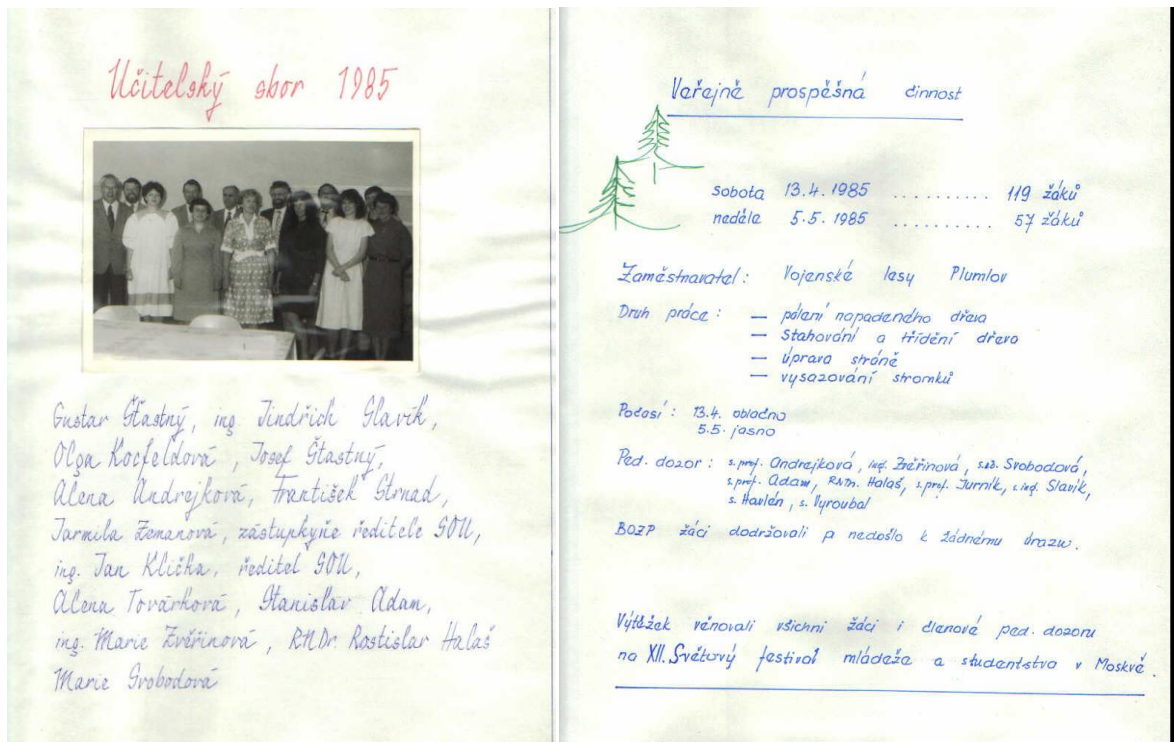 Učitelský sbor 1985
Gustav Šťastný, ing. Jindřich Slavík,
Olga Kocfeldová, Josef Šťastný,
Alena Andrejková, František Strnad,
Jarmila Zemanová, zástupkyně ředitele SOU,
ing. Jan Klička, ředitel SOU,
Alena Továrková, Stanislav Adam,
ing. Marie Zvěřinová, RNDr. Rostislav Halaš
Marie Svobodová
Veřejně prospěšná činnost
sobota 13.4. 1985 .......... 119 žáků
neděle 5.5. 1985 .......... 57 žáků
Zaměstnavatel: Vojenské lesy Plumlov
Druh práce: — pálení napadeného dřeva
— Stahování a třídění dřeva
— úprava stráně
— vysazování stromků
Počasí: 13.4. oblačno
5.5. jasno
Ped. dozor: s.prof. Andrejková, ing. Zvěřinová, s.uč. Svobodová,
s.prof. Adam, RNDr. Halaš, s.prof. Jurník, s.ing. Slavík,
s. Havlén, s. Vyroubal
BOZP žáci dodržovali a nedošlo k žádnému úrazu.
Výtěžek věnovali všichni žáci i členové ped. dozoru
na XII. Světový festival mládeže a studentstva v Moskvě.